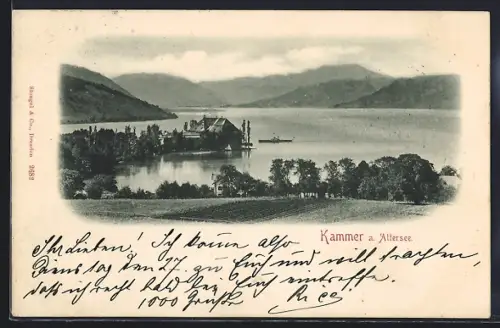 Stengel & Co., Dresden 2682
Kammer a. Attersee.
Ihr Lieben! Ich komme also
Dienstag den 27. zu Euch und will trachten,
daß ich recht bald bei Euch eintreffe.
1000 Grüße